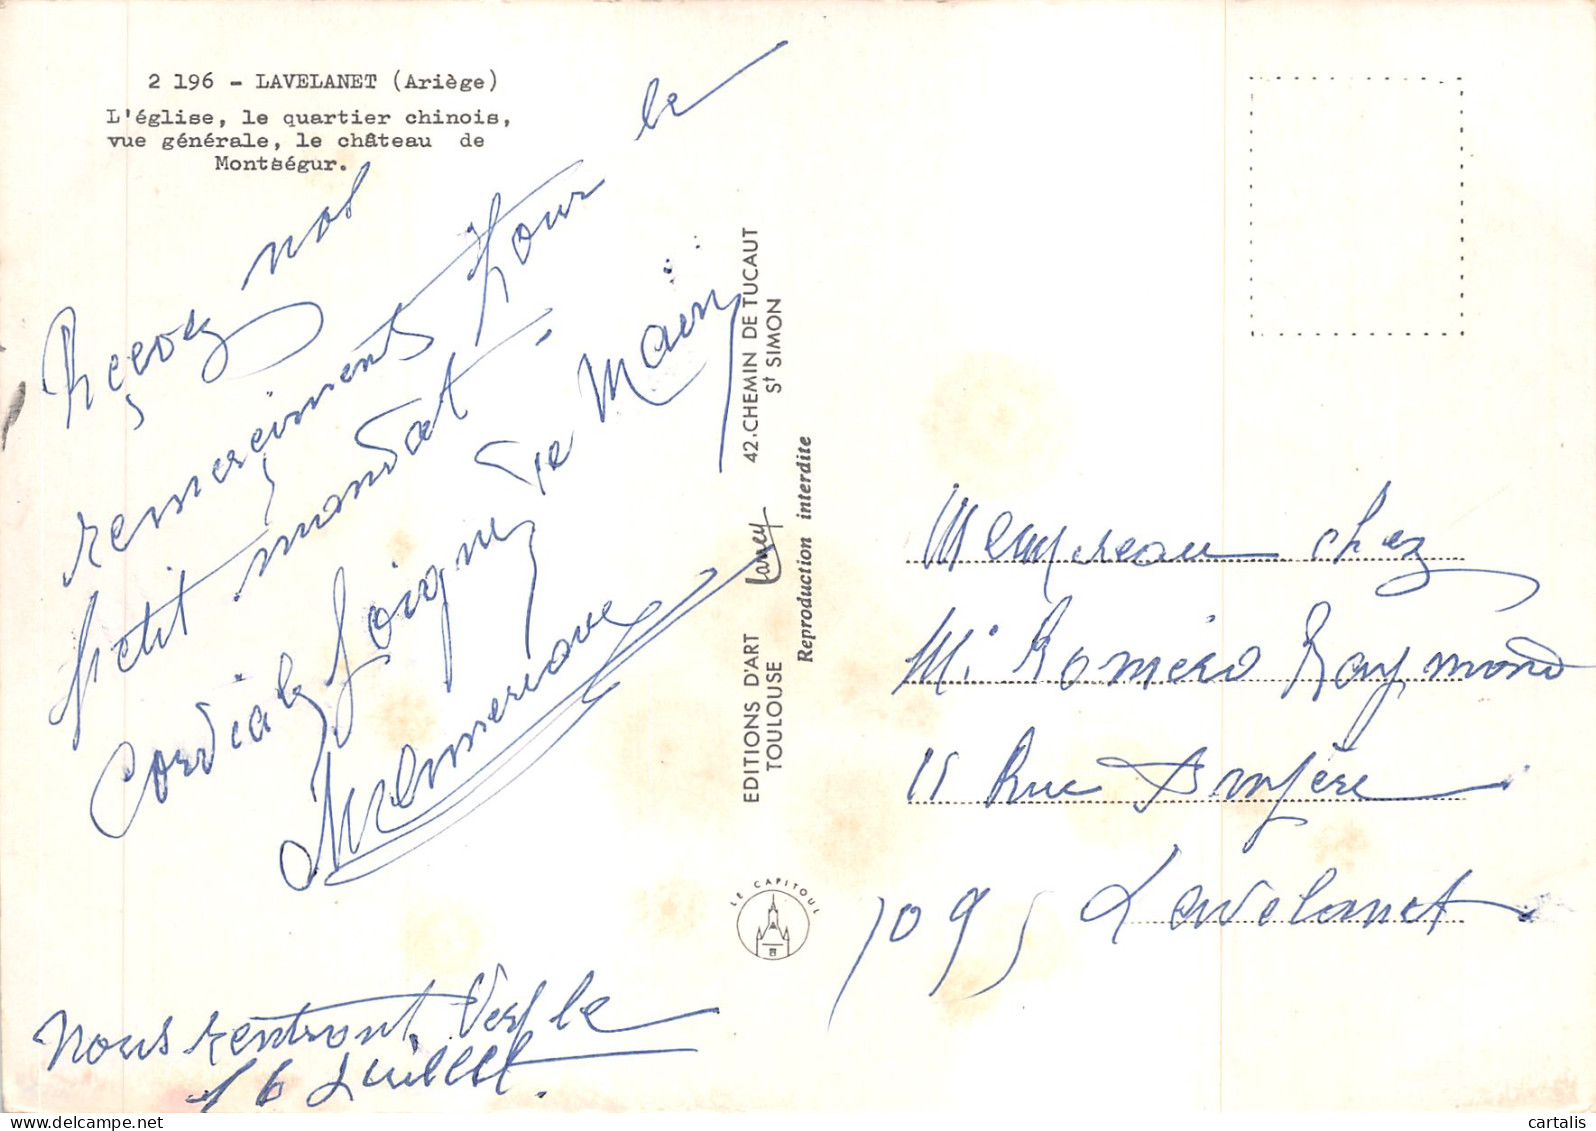 2 196 - LAVELANET (Ariège)
L'église, le quartier chinois,
vue générale, le château de
Montségur.
Reçevez nos
remerciments pour le
petit mandat.
Cordiale Poignée de Main
Nous rentront vers le
16 Juillet.
EDITIONS D'ART Larrey 42.CHEMIN DE TUCAUT
TOULOUSE St SIMON
Reproduction interdite
LE CAPITOUL
chez
Mr Romero Raymond
15 Rue
Lavelanet
cartalis
www.delcampe.net